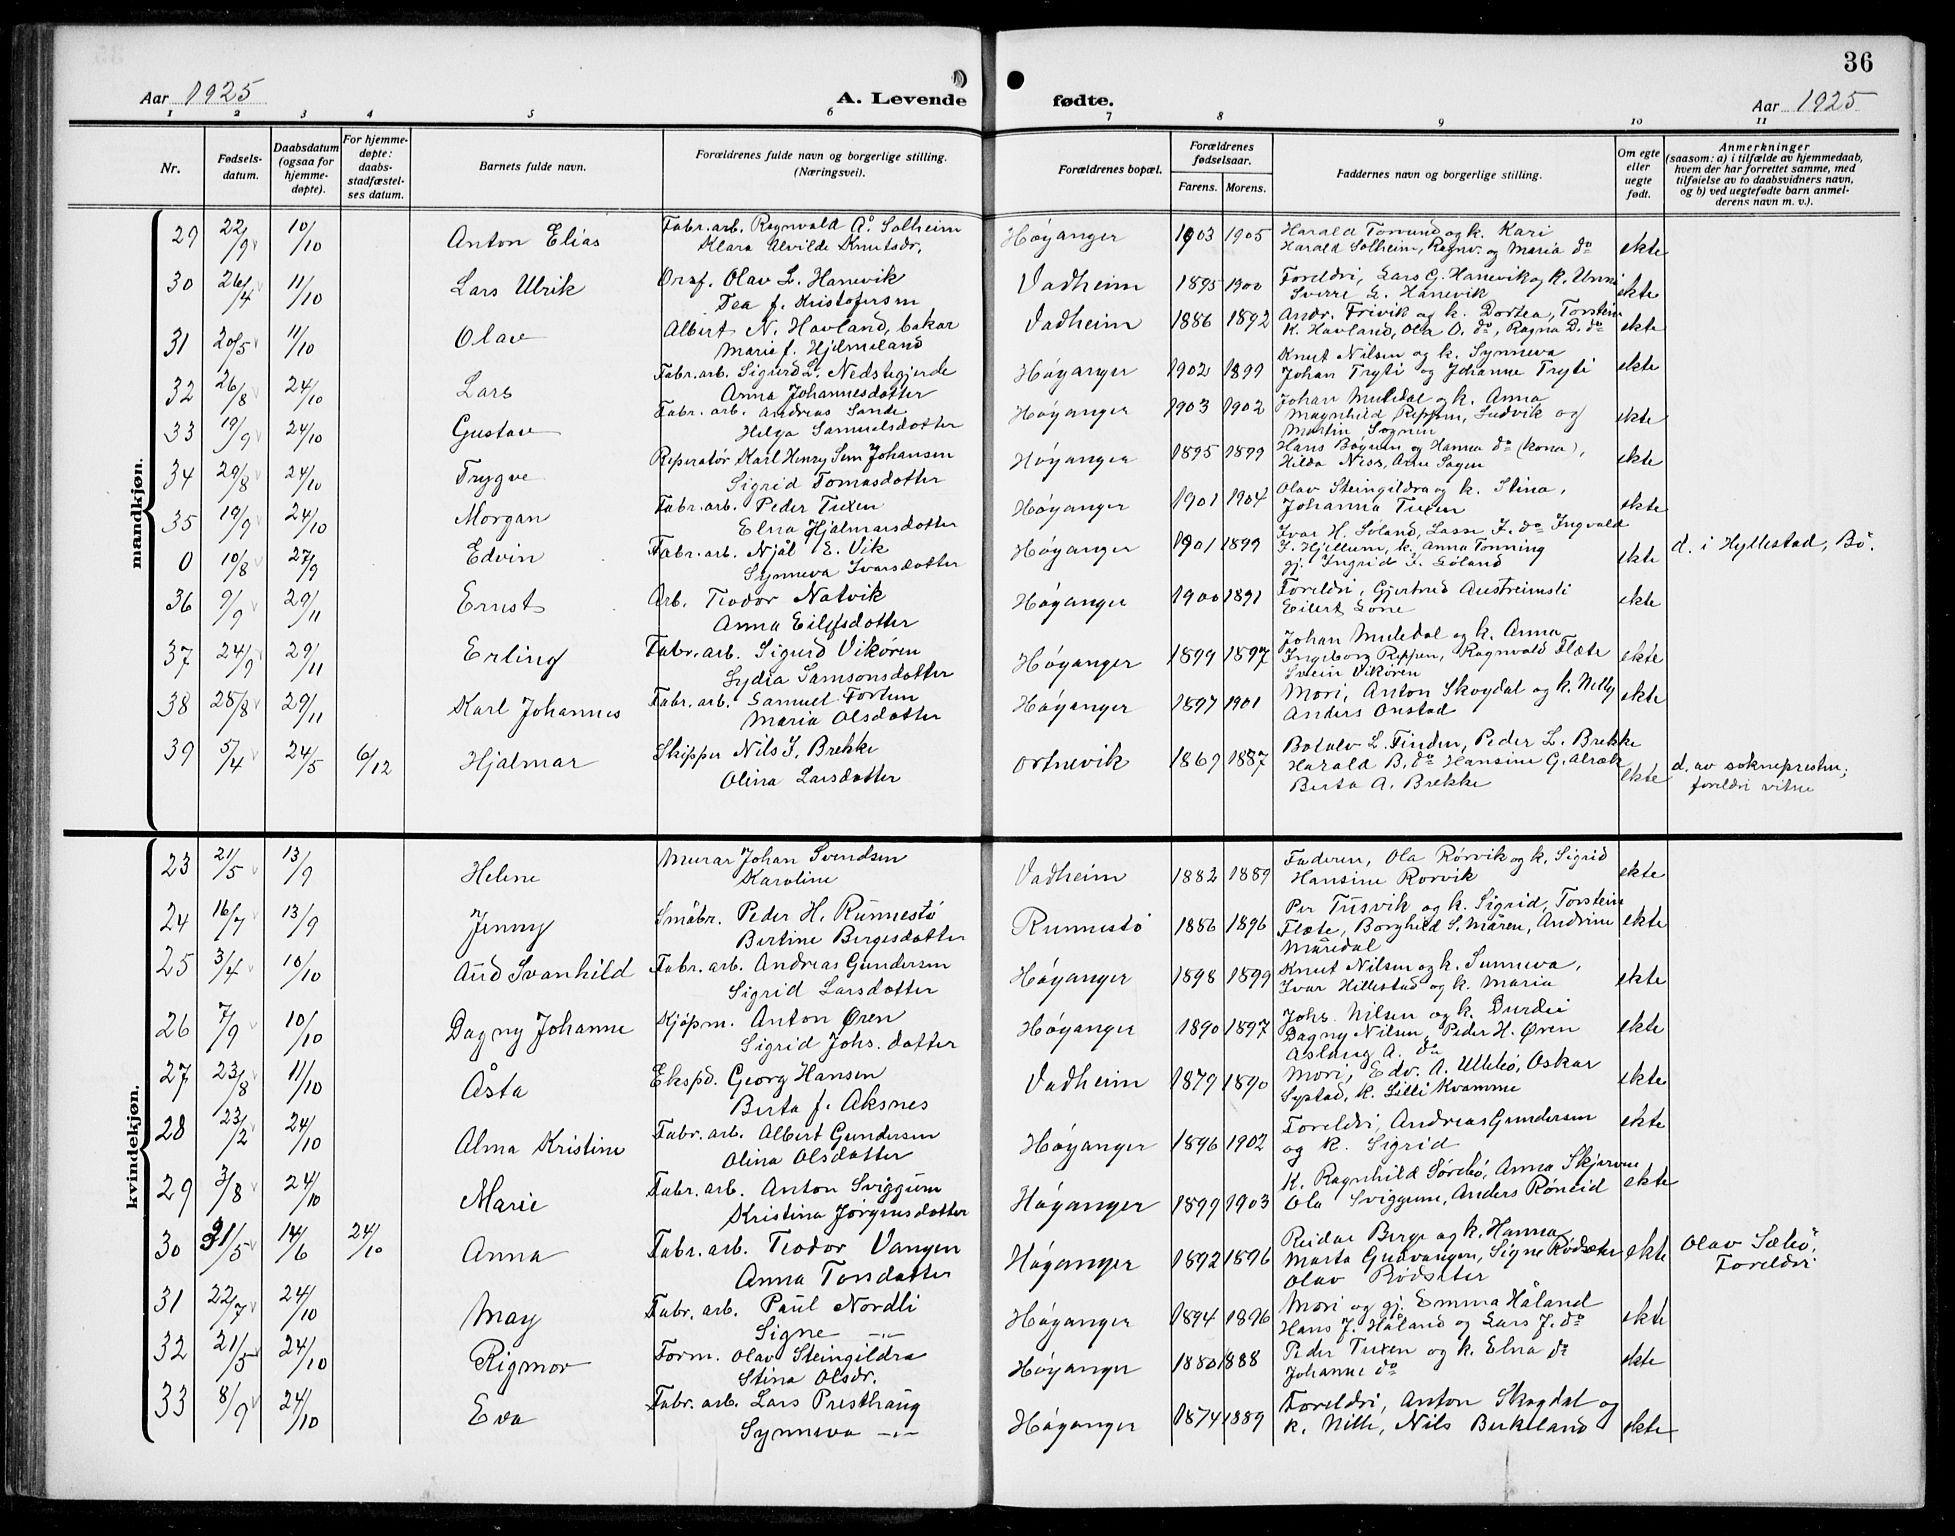 36
Aar 1925
A. Levende fødte.
Aar 1925
1 2 3 4 5 6 7 8 9 10 11
Nr. Fødselsdatum. Daabsdatum (ogsaa for hjemmedøpte). For hjemmedøpte: daabsstadfæstelses datum. Barnets fulde navn. Forældrenes fulde navn og borgerlige stilling. (Næringsvei). Forældrenes bopæl. Forældrenes fødselsaar. Farens. Morens. Faddernes navn og borgerlige stilling. Om egte eller uegte født. Anmerkninger (saasom: a) i tilfælde av hjemmedaab, hvem der har forrettet samme, med tilføielse av to daabsvidners navn, og b) ved uegtefødte barn anmelderens navn m. v.).
mandkjøn.
29 22/9 10/10 Anton Elias Fabr. arb. Ragnvald A. Solheim Klara Alvilde Knutsdr. Høyanger 1903 1905 Harald Torvund og k. Kari Harald Solheim, Ragnv. og Maria do ekte
30 26/4 11/10 Lars Ulrik Olav L. Hanevik Tea f. Kristofersen Vadheim 1895 1900 Foreldri, Lars G. Hanevik og k. Unni Sverre L. Hanevik ekte
31 20/5 11/10 Olav Albert N. Havland, bakar Marie f. Hjelmeland Vadheim 1886 1892 Andr. Frivik og k. Dortea, Torstein K. Havland, Ola O. do, Ragna D. do ekte
32 26/8 24/10 Lars Fabr. arb. Sigurd L. Nedstegjerde Anna Johannesdotter Høyanger 1902 1899 Knut Nilsen og k. Synneva Johan Tryti og Johanne Tryti ekte
33 19/9 24/10 Gustav Fabr. arb. Andreas Sande Helga Samuelsdotter Høyanger 1903 1902 Johan Muledal og k. Anna Magnhild Reppen, Ludvik og Martin Sognen ekte
34 29/8 24/10 Trygve Reperatør Karl Henry Sem Johansen Sigrid Tomasdotter Høyanger 1895 1899 Hans Bøyum og Hanna do (kona), Hilda Ness, Arne Sagen ekte
35 19/9 24/10 Morgan Fabr. arb. Peder Tuxen Elna Hjalmarsdotter Høyanger 1901 1904 Olav Steingildra og k. Stina, Johanna Tuxen ekte
0 10/8 27/9 Edvin Fabr. arb. Njål E. Vik Synneva Ivarsdotter Høyanger 1901 1899 Ivar H. Søland, Lasse I. do Ingvald I. Hjellum, k. Anna Tonning gj. Ingrid I. Søland ekte d. i Hyllestad, Bø.
36 9/9 29/11 Ernst Arb. Teodor Natvik Anna Eilefsdotter Høyanger 1900 1891 Foreldri, Gjertrud Austreimsli Eilert Lone ekte
37 24/9 29/11 Erling Fabr. arb. Sigurd Vikøren Lydia Samsonsdotter Høyanger 1899 1897 Johan Muledal og k. Anna Ingeborg Reppen, Ragnvald Flete Svein Vikøren ekte
38 28/8 29/11 Karl Johannes Fabr. arb. Samuel Fortun Maria Olsdotter Høyanger 1897 1901 Mori, Anton Skogdal og k. Nilly Anders Onstad ekte
39 5/4 24/5 6/12 Hjalmar Skipper Nils I. Brekke Olina Larsdotter Ortnevik 1869 1887 Botolv L. Finden, Peder L. Brekke Harald B. do Hansine G. Alræk Berta A. Brekke ekte d. av sokneprestn; foreldri vitne
kvindekjøn.
23 21/5 13/9 Helene Murar Johan Svendsen Karoline Vadheim 1882 1889 Faderen, Ola Rørvik og k. Sigrid Hansine Rørvik ekte
24 16/7 13/9 Jenny Småbr. Peder H. Runnestø Bertine Børgesdotter Runnestø 1886 1896 Per Tusvik og k. Sigrid, Torstein Flete, Borghild S. Måren, Andrine Måredal ekte
25 3/4 10/10 Aud Svanhild Fabr. arb. Andreas Gundersen Sigrid Larsdotter Høyanger 1898 1899 Knut Nilsen og k. Sunneva, Ivar Hillestad og k. Maria ekte
26 7/9 10/10 Dagny Johanne Kjøpm. Anton Øren Sigrid Johs. dotter Høyanger 1890 1897 Johs. Nilsen og k. Durdei Dagny Nilsen, Peder H. Øren Aslaug A. do ekte
27 23/8 11/10 Åsta Ekspd. Georg Hansen Berta f. Aksnes Vadheim 1879 1890 Mori, Edv. A. Ullebø, Oskar Systad, k. Lilli Kvamme ekte
28 23/2 24/10 Alma Kristine Fabr. arb. Albert Gundersen Olina Olsdotter Høyanger 1896 1902 Foreldri, Andreas Gundersen og k. Sigrid ekte
29 3/8 24/10 Marie Fabr. arb. Anton Sviggum Kristina Jørgensdotter Høyanger 1899 1903 K. Ragnhild Sørebø, Anna Skjerven Ola Sviggum, Anders Røneid ekte
30 31/5 14/6 24/10 Anna Fabr. arb. Teodor Vangen Anna Tonsdotter Høyanger 1892 1896 Reidar Berge og k. Hanna, Marta Gudvangen, Signe Rødseter Olav Rødseter ekte Olav Sæbø, Foreldri
31 22/7 24/10 May Fabr. arb. Paul Nordli Signe -"- Høyanger 1894 1896 Mori og gj. Emma Håland Hans J. Håland og Lars J. do ekte
32 21/5 24/10 Rigmor Form. Olav Steingildra Stina Olsdr. Høyanger 1880 1888 Peder Tuxen og k. Elna do Johanne do ekte
33 8/9 24/10 Eva Fabr. arb. Lars Presthaug Synneva -"- Høyanger 1874 1889 Foreldri, Anton Skogdal og k. Nille, Nils Birkeland ekte